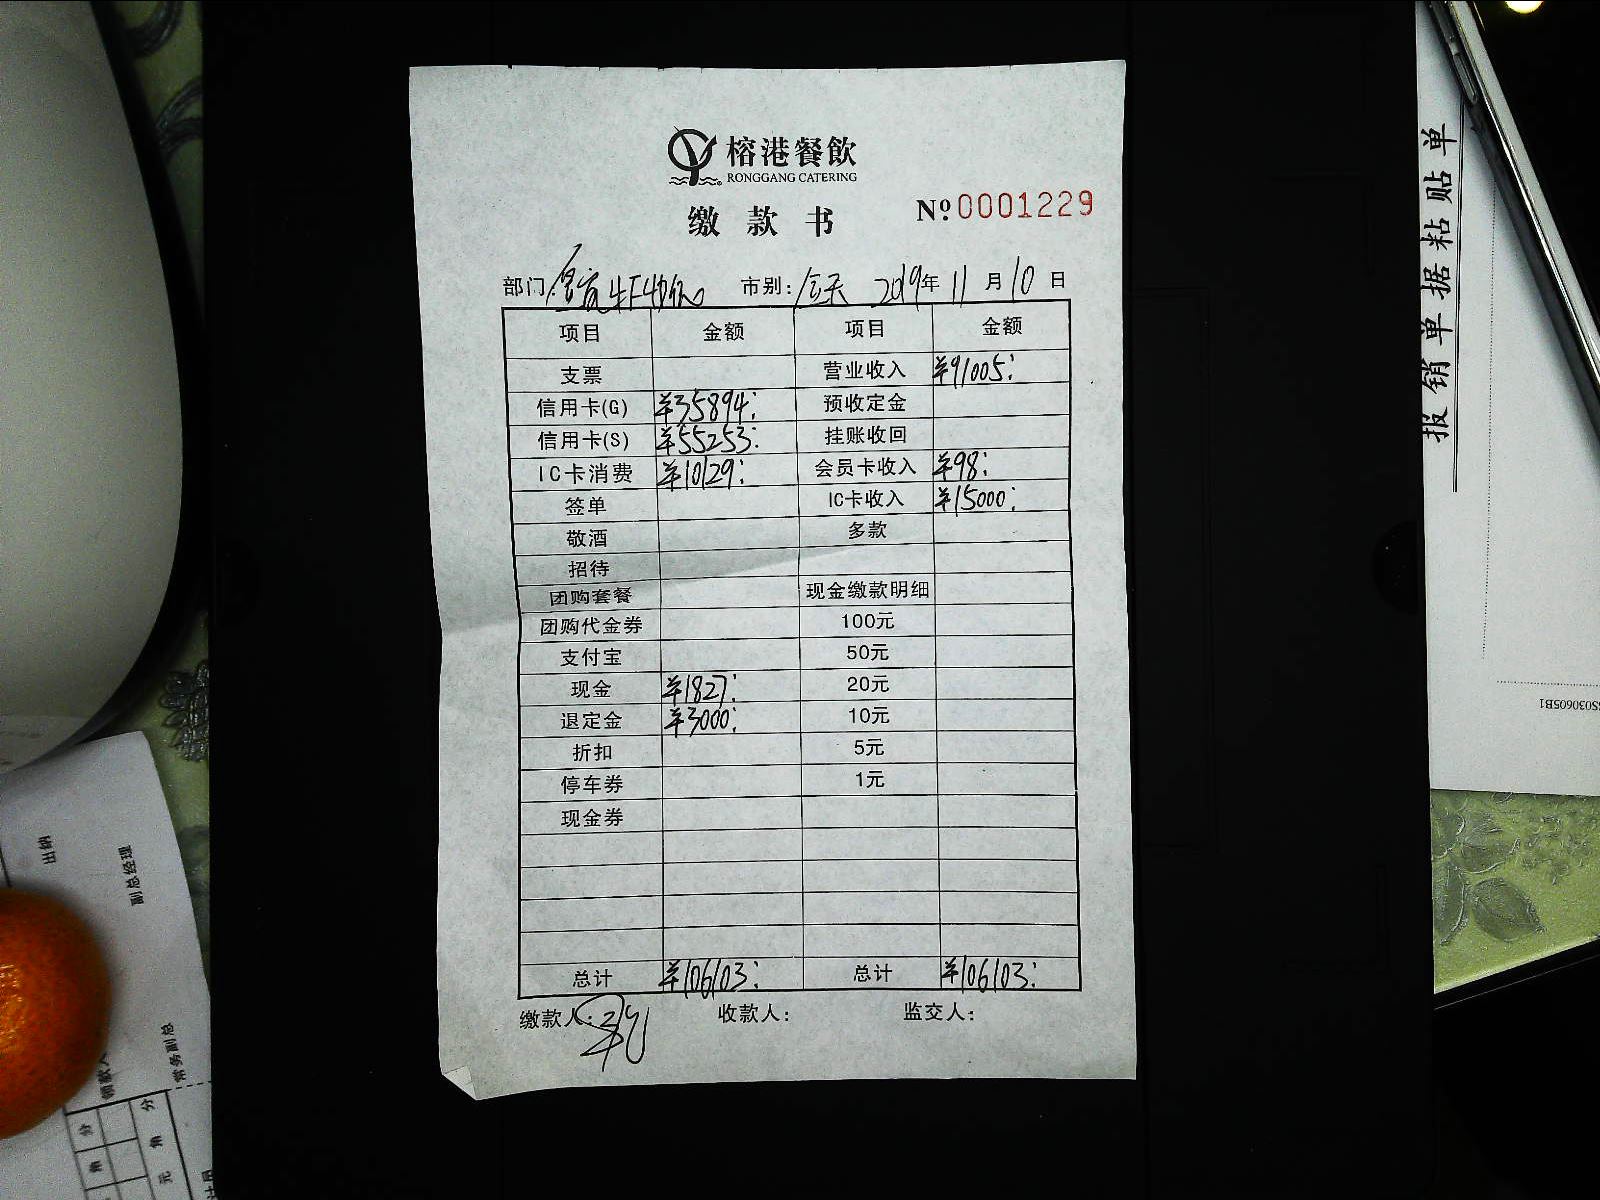 榕港餐飲
RONGGANG CATERING
缴款书 №0001229
部门 市别: 全天 2019年11月10日
项目 金额 项目 金额
支票 营业收入 ¥91005:
信用卡(G) ¥35894: 预收定金
信用卡(S) ¥55253: 挂账收回
IC卡消费 ¥10129: 会员卡收入 ¥98:
签单 IC卡收入 ¥15000:
敬酒 多款
招待
团购套餐 现金缴款明细
团购代金券 100元
支付宝 50元
现金 ¥1827: 20元
退定金 ¥3000: 10元
折扣 5元
停车券 1元
现金券
总计 ¥106103: 总计 ¥106103:
缴款人: 收款人: 监交人:
报销单据粘贴单
S030605B1
出纳
副总经理
领款人
常务副总
分
角
分
角
元